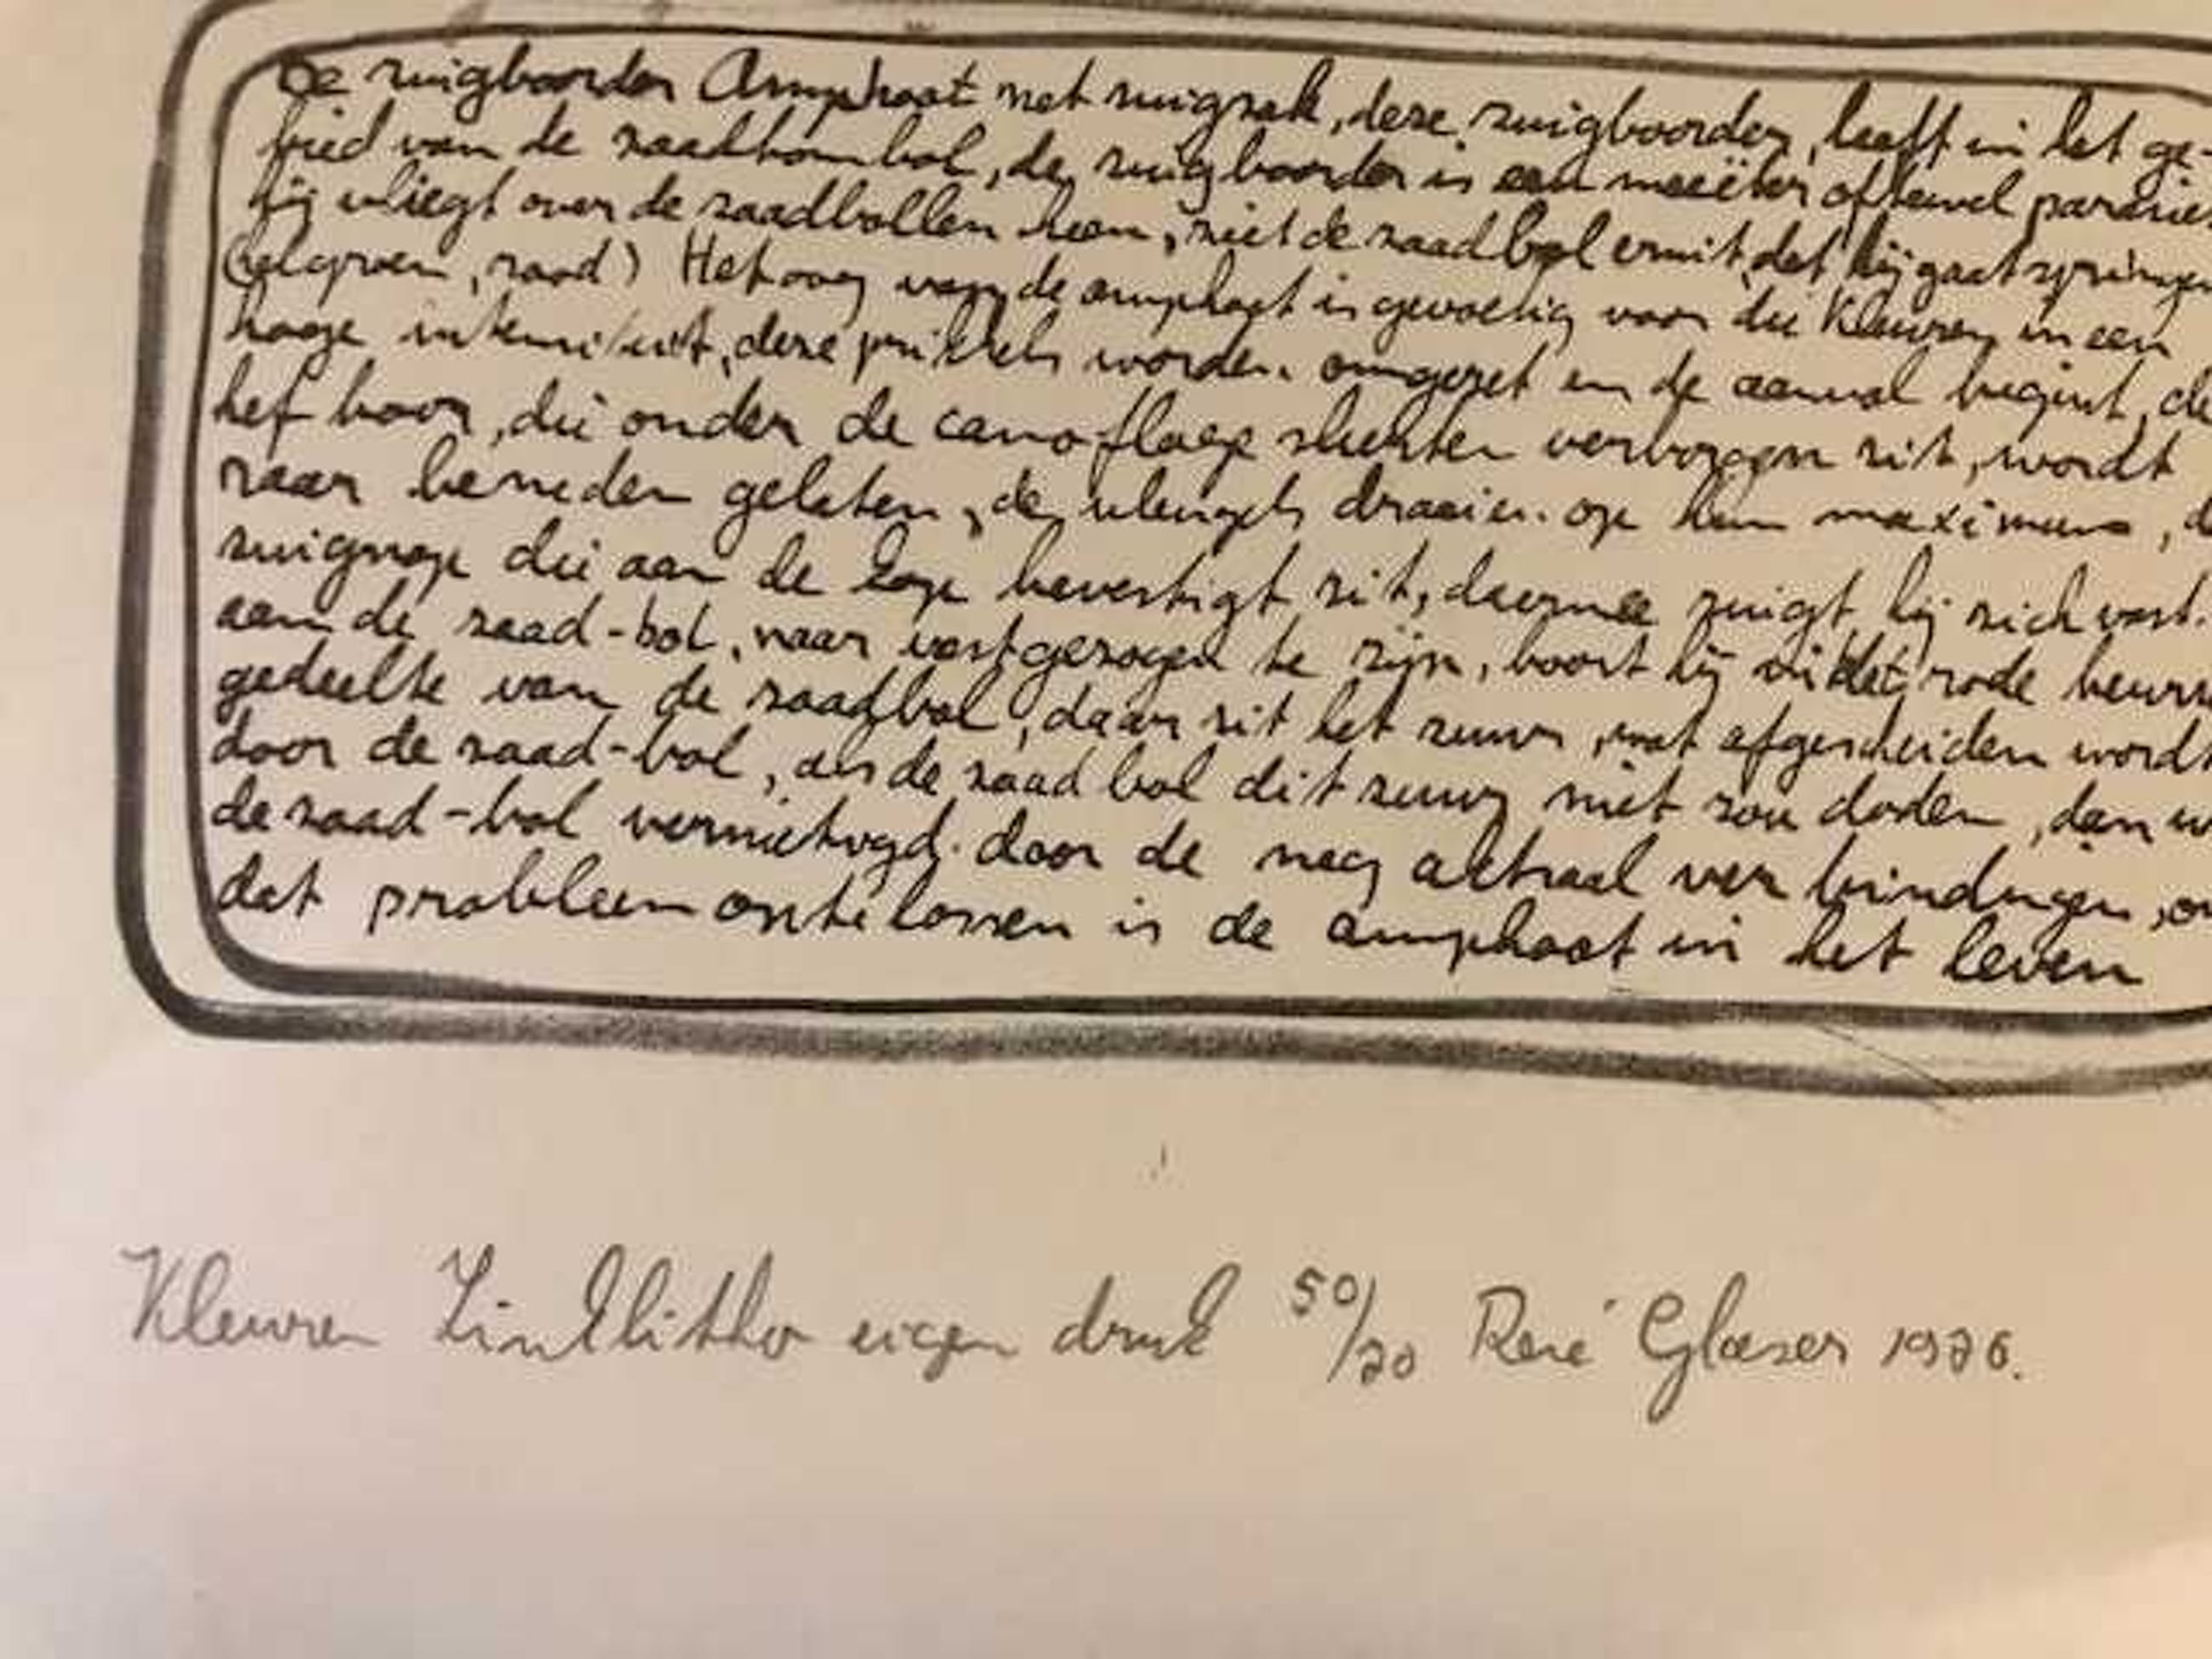 De zuigboorder Amphaat met zuigzak, deze zuigboorder, leeft in het ge-
bied van de zaadbombol, de zuigboorder is een meeëter oftewel parasie
hij vliegt over de zaadbollen heen, ziet de zaadbol eruit dat hij gaat springen
(gelgroen, rood) Het oog van de amphaat is gevoelig voor die kleuren in een
hooge intensiteit, deze prikkels worden omgezet en de aanval begint, de
hef boor, die onder de camoflage slierten verborgen zit, wordt
naar beneden gelaten, de vleugels draaien op hun maximum, d
zuignap die aan de kop bevestigt zit, daarmee zuigt hij zich vast.
aan de zaad-bol, naar vastgezogen te zijn, boort hij in het rode
gedeelte van de zaadbol, daar zit het zuur, wat afgescheiden wordt
door de zaad-bol, als de zaad bol dit zuur niet zou doden, dan w
de zaad-bol vernietvgd. door de neg astraal ver bindingen, o
dat probleem opte lossen is de amphaat in het leven
Kleuren Zinklitho eigen druk 50/20 René Glaser 1976.